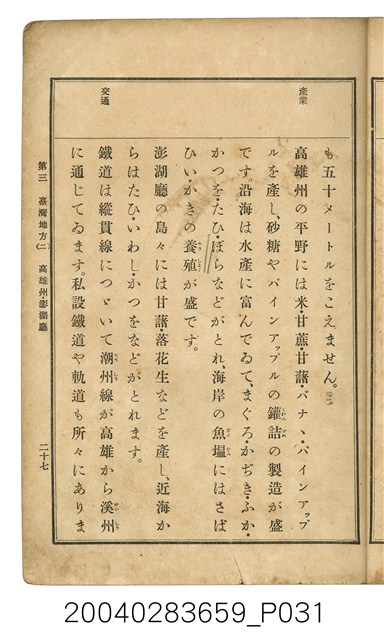 産業
も五十メートルをこえません。
高雄州の平野には米・甘蔗・甘藷・バナヽ・パインアップ
ルを産し、砂糖やパインアップルの罐詰の製造が盛
です。沿海は水産に富んでゐて、まぐろ・かぢき・ふか・
かつを・たひ・ぼらなどがとれ、海岸の魚塭にはさば
ひい・かきの養殖が盛です。
澎湖廳の島々には甘藷・落花生などを産し、近海か
らはたひ・いわし・かつをなどがとれます。
交通
鐵道は縱貫線につゞいて潮州線が高雄から溪州
に通じてゐます。私設鐵道や軌道も所々にありま
第三 臺灣地方(二) 高雄州・澎湖廳
二十七
20040283659_P031